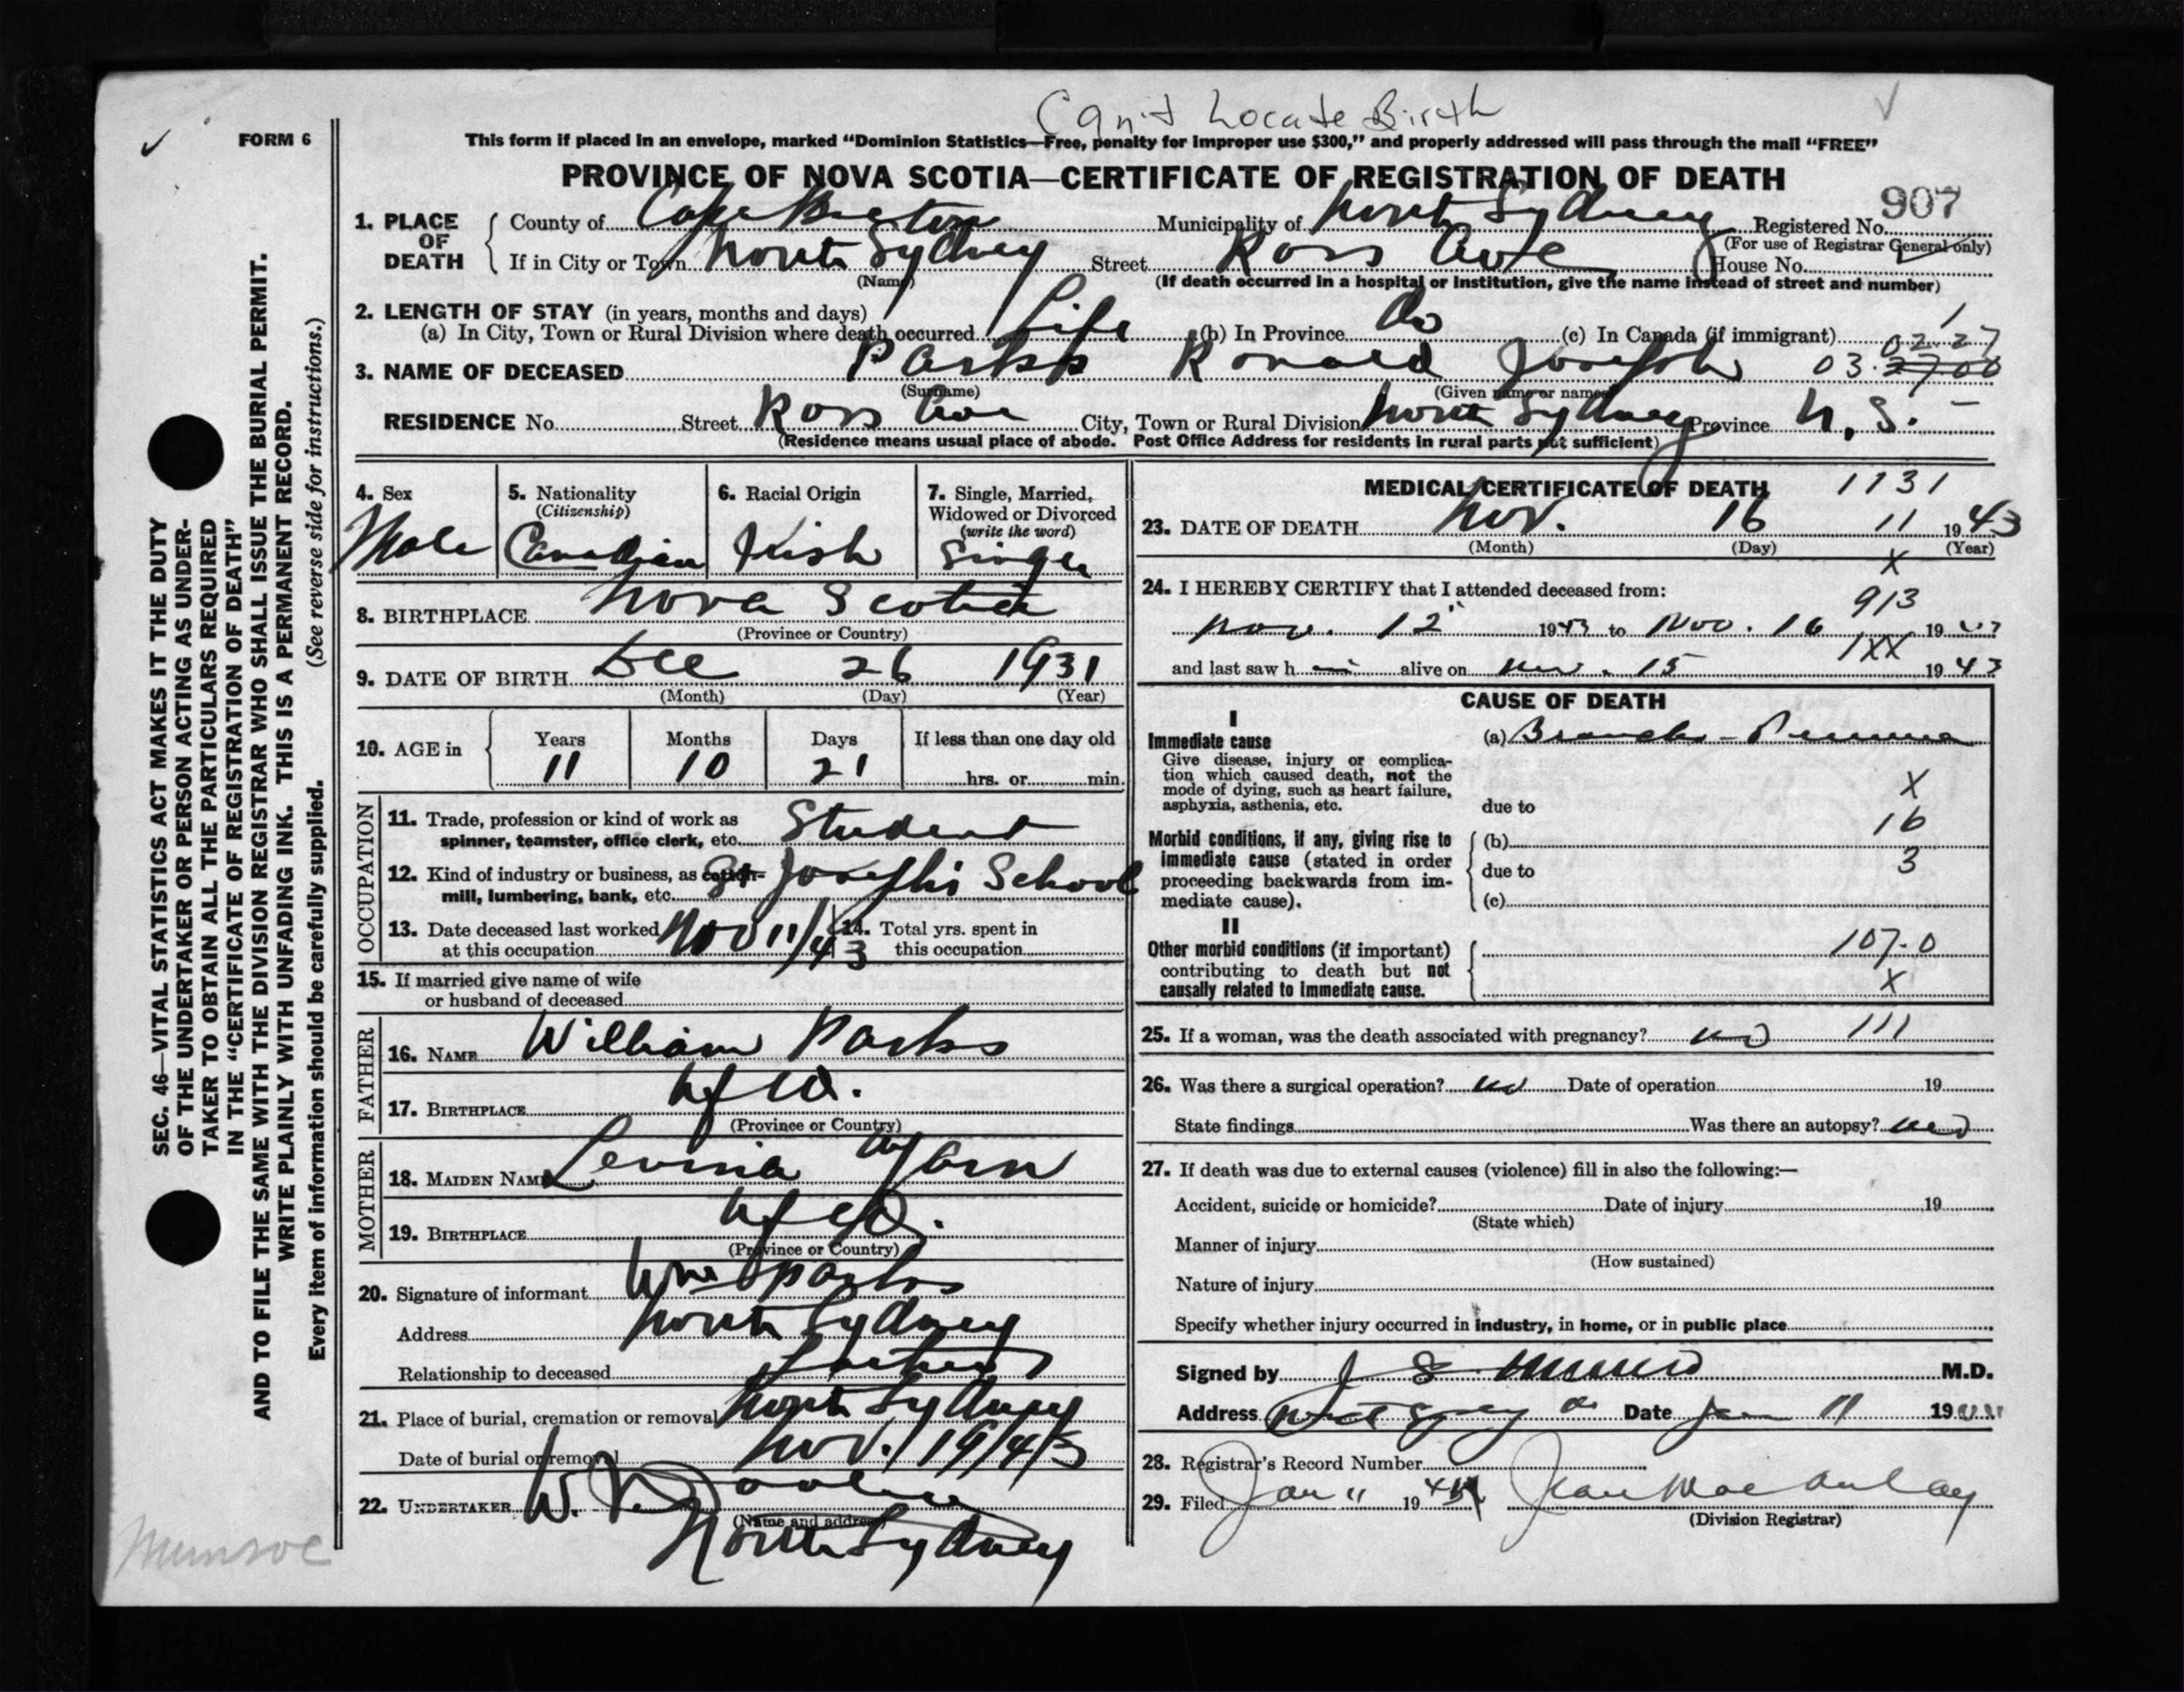 Can't Locate Birth
FORM 6
This form if placed in an envelope, marked “Dominion Statistics—Free, penalty for improper use $300,” and properly addressed will pass through the mail “FREE”
PROVINCE OF NOVA SCOTIA—CERTIFICATE OF REGISTRATION OF DEATH
907
1. PLACE OF DEATH County of Cape Breton Municipality of North Sydney Registered No.
(For use of Registrar General only)
If in City or Town North Sydney Street Ross Ave House No.
(Name) (If death occurred in a hospital or institution, give the name instead of street and number)
2. LENGTH OF STAY (in years, months and days)
(a) In City, Town or Rural Division where death occurred Life (b) In Province Do (c) In Canada (if immigrant)
1
02.27
3. NAME OF DECEASED Parks Ronald Joseph 03. 2700
(Surname) (Given name or names)
RESIDENCE No. Street Ross Ave City, Town or Rural Division North Sydney Province N.S.
(Residence means usual place of abode. Post Office Address for residents in rural parts not sufficient)
4. Sex
Male
5. Nationality
(Citizenship)
Canadian
6. Racial Origin
Irish
7. Single, Married,
Widowed or Divorced
(write the word)
Single
8. BIRTHPLACE Nova Scotia
(Province or Country)
9. DATE OF BIRTH Dec 26 1931
(Month) (Day) (Year)
10. AGE in Years Months Days If less than one day old
11 10 21 hrs. or min.
OCCUPATION
11. Trade, profession or kind of work as
spinner, teamster, office clerk, etc. Student
12. Kind of industry or business, as cotton-
mill, lumbering, bank, etc. St Josephs School
13. Date deceased last worked
at this occupation Nov 11/43
14. Total yrs. spent in
this occupation
15. If married give name of wife
or husband of deceased
FATHER
16. NAME William Parks
17. BIRTHPLACE Nfld.
(Province or Country)
MOTHER
18. MAIDEN NAME Levinia Yarn
19. BIRTHPLACE Nfld.
(Province or Country)
20. Signature of informant Wm Parks
Address North Sydney
Relationship to deceased Father
21. Place of burial, cremation or removal North Sydney
Date of burial or removal Nov. 19/43
22. UNDERTAKER W.
(Name and address)
North Sydney
MEDICAL CERTIFICATE OF DEATH 1131
23. DATE OF DEATH Nov. 16 11 1943
(Month) (Day) (Year)
X
24. I HEREBY CERTIFY that I attended deceased from:
913
Nov. 12 1943 to Nov. 16 19
1XX
and last saw h alive on Nov. 15 1943
CAUSE OF DEATH
I
Immediate cause
Give disease, injury or complica-
tion which caused death, not the
mode of dying, such as heart failure,
asphyxia, asthenia, etc.
(a) Broncho-Pneumonia
X
due to
16
Morbid conditions, if any, giving rise to
immediate cause (stated in order
proceeding backwards from im-
mediate cause).
(b)
due to
3
(c)
II
Other morbid conditions (if important)
contributing to death but not
causally related to immediate cause.
107.0
X
25. If a woman, was the death associated with pregnancy? no 111
26. Was there a surgical operation? no Date of operation 19
State findings Was there an autopsy? no
27. If death was due to external causes (violence) fill in also the following:—
Accident, suicide or homicide? Date of injury 19
(State which)
Manner of injury
(How sustained)
Nature of injury
Specify whether injury occurred in industry, in home, or in public place
Signed by J S Munro M.D.
Address Date Jan 11 19
28. Registrar's Record Number
29. Filed Jan 11 19 Jean MacAulay
(Division Registrar)
SEC. 46—VITAL STATISTICS ACT MAKES IT THE DUTY
OF THE UNDERTAKER OR PERSON ACTING AS UNDER-
TAKER TO OBTAIN ALL THE PARTICULARS REQUIRED
IN THE “CERTIFICATE OF REGISTRATION OF DEATH”
AND TO FILE THE SAME WITH THE DIVISION REGISTRAR WHO SHALL ISSUE THE BURIAL PERMIT.
WRITE PLAINLY WITH UNFADING INK. THIS IS A PERMANENT RECORD.
Every item of information should be carefully supplied. (See reverse side for instructions.)
Munroe